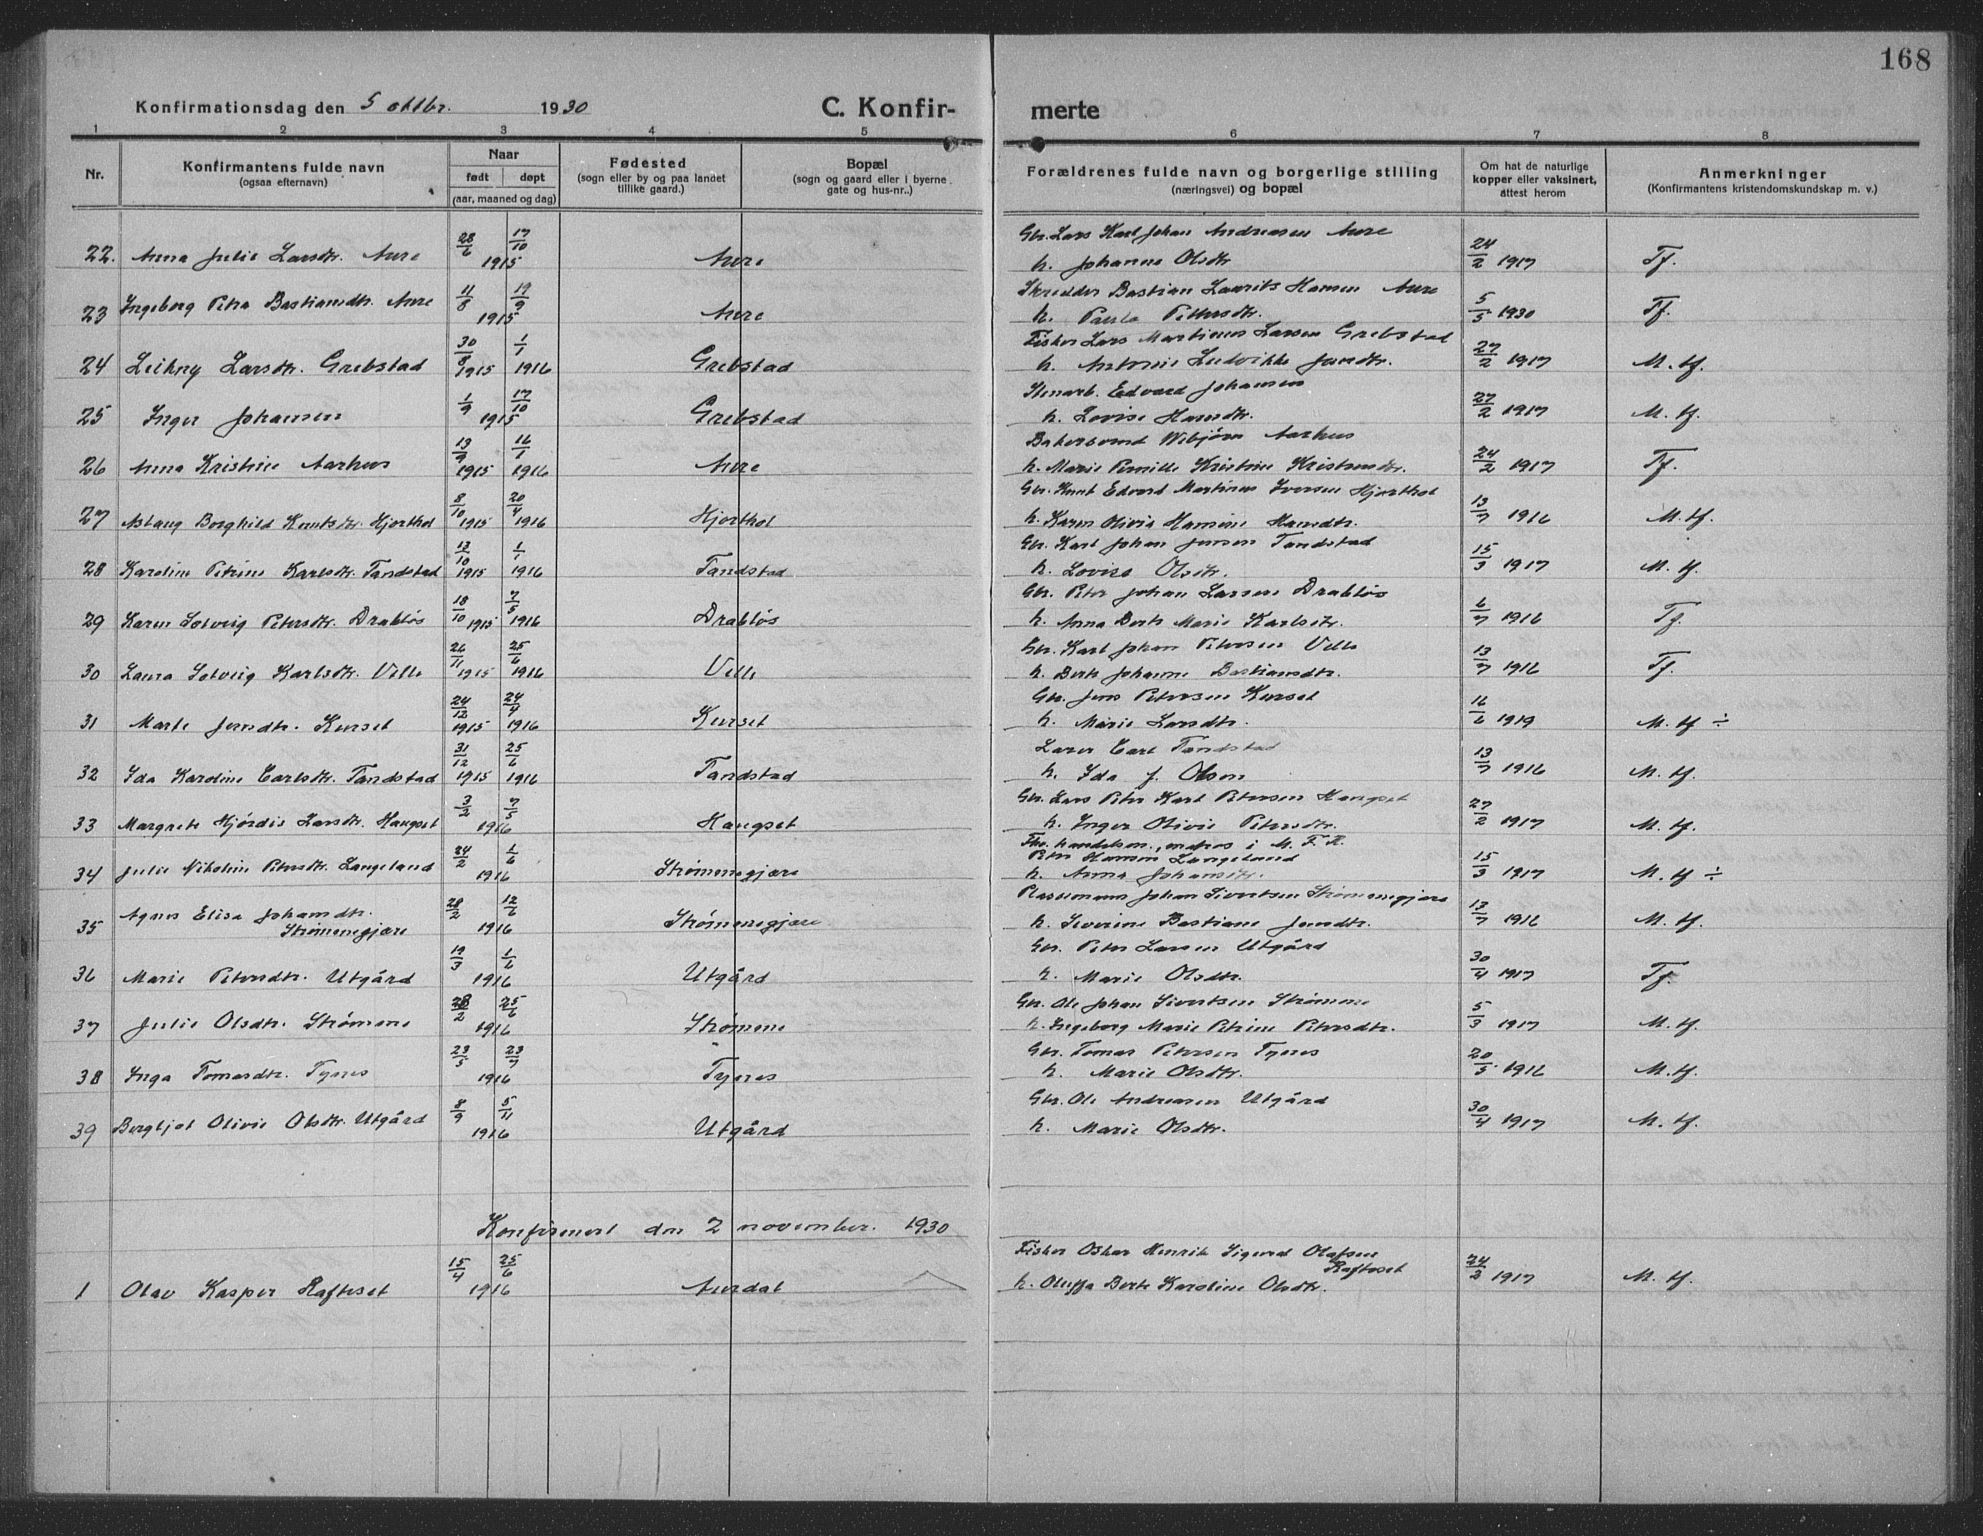 168
Konfirmationsdag den 5 oktbr. 1930 C. Konfirmerte
1 2 3 4 5 6 7 8
Nr. Konfirmantens fulde navn (ogsaa efternavn) Naar født døpt (aar, maaned og dag) Fødested (sogn eller by og paa landet tillike gaard.) Bopæl (sogn og gaard eller i byerne gate og hus-nr..) Forældrenes fulde navn og borgerlige stilling (næringsvei) og bopæl Om hat de naturlige kopper eller vaksinert, attest herom Anmerkninger (Konfirmantens kristendomskundskap m. v.)
22. Anna Julie Larsdtr. Aure 28/6 17/10 1915 Aure Gbr. Lars Karl Johan Andreasen Aure
h. Johanne Olsdtr 24/2 1917 Tf.
23 Ingeborg Petra Bastiansdtr. Aure 11/8 19/9 1915 Aure Skredder Bastian Laurits Hansen Aure
h. Paula Pettersdtr. 5/5 1930 Tf.
24 Leikny Larsdtr. Grebstad 30/8 1915 1/1 1916 Grebstad Fisker Lars Martinus Larsen Grebstad
h. Antonie Ludvikke Jensdtr. 27/2 1917 M. tf.
25 Inger Johansen 1/9 17/10 1915 Grebstad Stenarb. Edvard Johansen
h. Lovise Hansdtr. 27/2 1917 M. tf.
26 Anna Kristine Aarhus 13/9 1915 16/1 1916 Aure Bakersvend Vebjørn Aarhus
h. Marie Pernille Kristine Kristensdtr. 24/2 1917 Tf.
27 Aslaug Borghild Knutsdtr. Hjorthol 8/10 1915 20/4 1916 Hjorthol Gbr. Knut Edvard Martinus Iversen Hjorthol
h. Karen Olivia Hansine Hansdtr. 13/7 1916 M. tf.
28 Karoline Petrine Karlsdtr. Tandstad 13/10 1915 1/1 1916 Tandstad Gbr. Karl Johan Jensen Tandstad
h. Lovise Olsdtr. 15/3 1917 M. tf.
29 Karen Solveig Petersdtr. Drabløs 18/10 1915 7/5 1916 Drabløs Gbr. Peter Johan Larsen Drabløs
h. Anna Berte Marie Karlsdtr. 6/7 1916 Tf.
30 Laura Solveig Karlsdtr. Velle 26/11 1915 25/6 1916 Velle Gbr. Karl Johan Petersen Velle
h. Berte Johanne Bastiansdtr. 13/7 1916 Tf.
31 Marte Jensdtr. Kurset 24/12 1915 24/4 1916 Kurset Gbr. Jens Petersen Kurset
h. Marie Larsdtr. 16/6 1919 M. tf ÷
32 Ida Karoline Carlsdtr. Tandstad 31/12 1915 25/6 1916 Tandstad Lærer Carl Tandstad
h. Ida J. Olsen 13/7 1916 M. tf.
33 Margrete Hjørdis Larsdtr. Haugset 3/2 7/5 1916 Haugset Gbr. Lars Peter Karl Petersen Haugset
h. Inger Olivie Petersdtr. 27/2 1917 M. tf.
34 Julie Nikoline Petersdtr. Langeland 24/2 1/6 1916 Strømmegjære Fhv. handelsm., matros i M. F. R.
Peter Hansen Langeland
h. Anna Johansdtr. 15/3 1917 M. tf ÷
35 Agnes Elisa Johansdtr.
Strømmegjære 28/2 12/6 1916 Strømmegjære Plassemann Johan Sivertsen Strømmegjære
h. Severine Bastiane Jensdtr. 13/7 1916 M. tf.
36 Marie Petersdtr. Utgård 19/3 1/6 1916 Utgård Gbr. Peter Larsen Utgård
h. Marie Olsdtr. 30/4 1917 Tf.
37 Julie Olsdtr. Strømme 28/2 25/6 1916 Strømme Gbr. Ole Johan Sivertsen Strømme
h. Ingeborg Marie Petrine Petersdtr. 5/3 1917 M. tf.
38 Inga Tomasdtr. Tynes 23/5 23/7 1916 Tynes Gbr. Tomas Petersen Tynes
h. Marie Olsdtr. 20/5 1916 M. tf.
39 Bergljot Olivie Olsdtr. Utgård 8/9 5/11 1916 Utgård Gbr. Ole Andreasen Utgård
h. Marie Olsdtr. 30/4 1917 M. tf.
Konfirmert den 2 november. 1930
1 Olav Kasper Rafteset 15/4 25/6 1916 Aurdal Fisker Oskar Henrik Sigurd Olafsen
Rafteset
h. Oluffa Berte Karoline Olsdtr. 24/2 1917 M. tf.